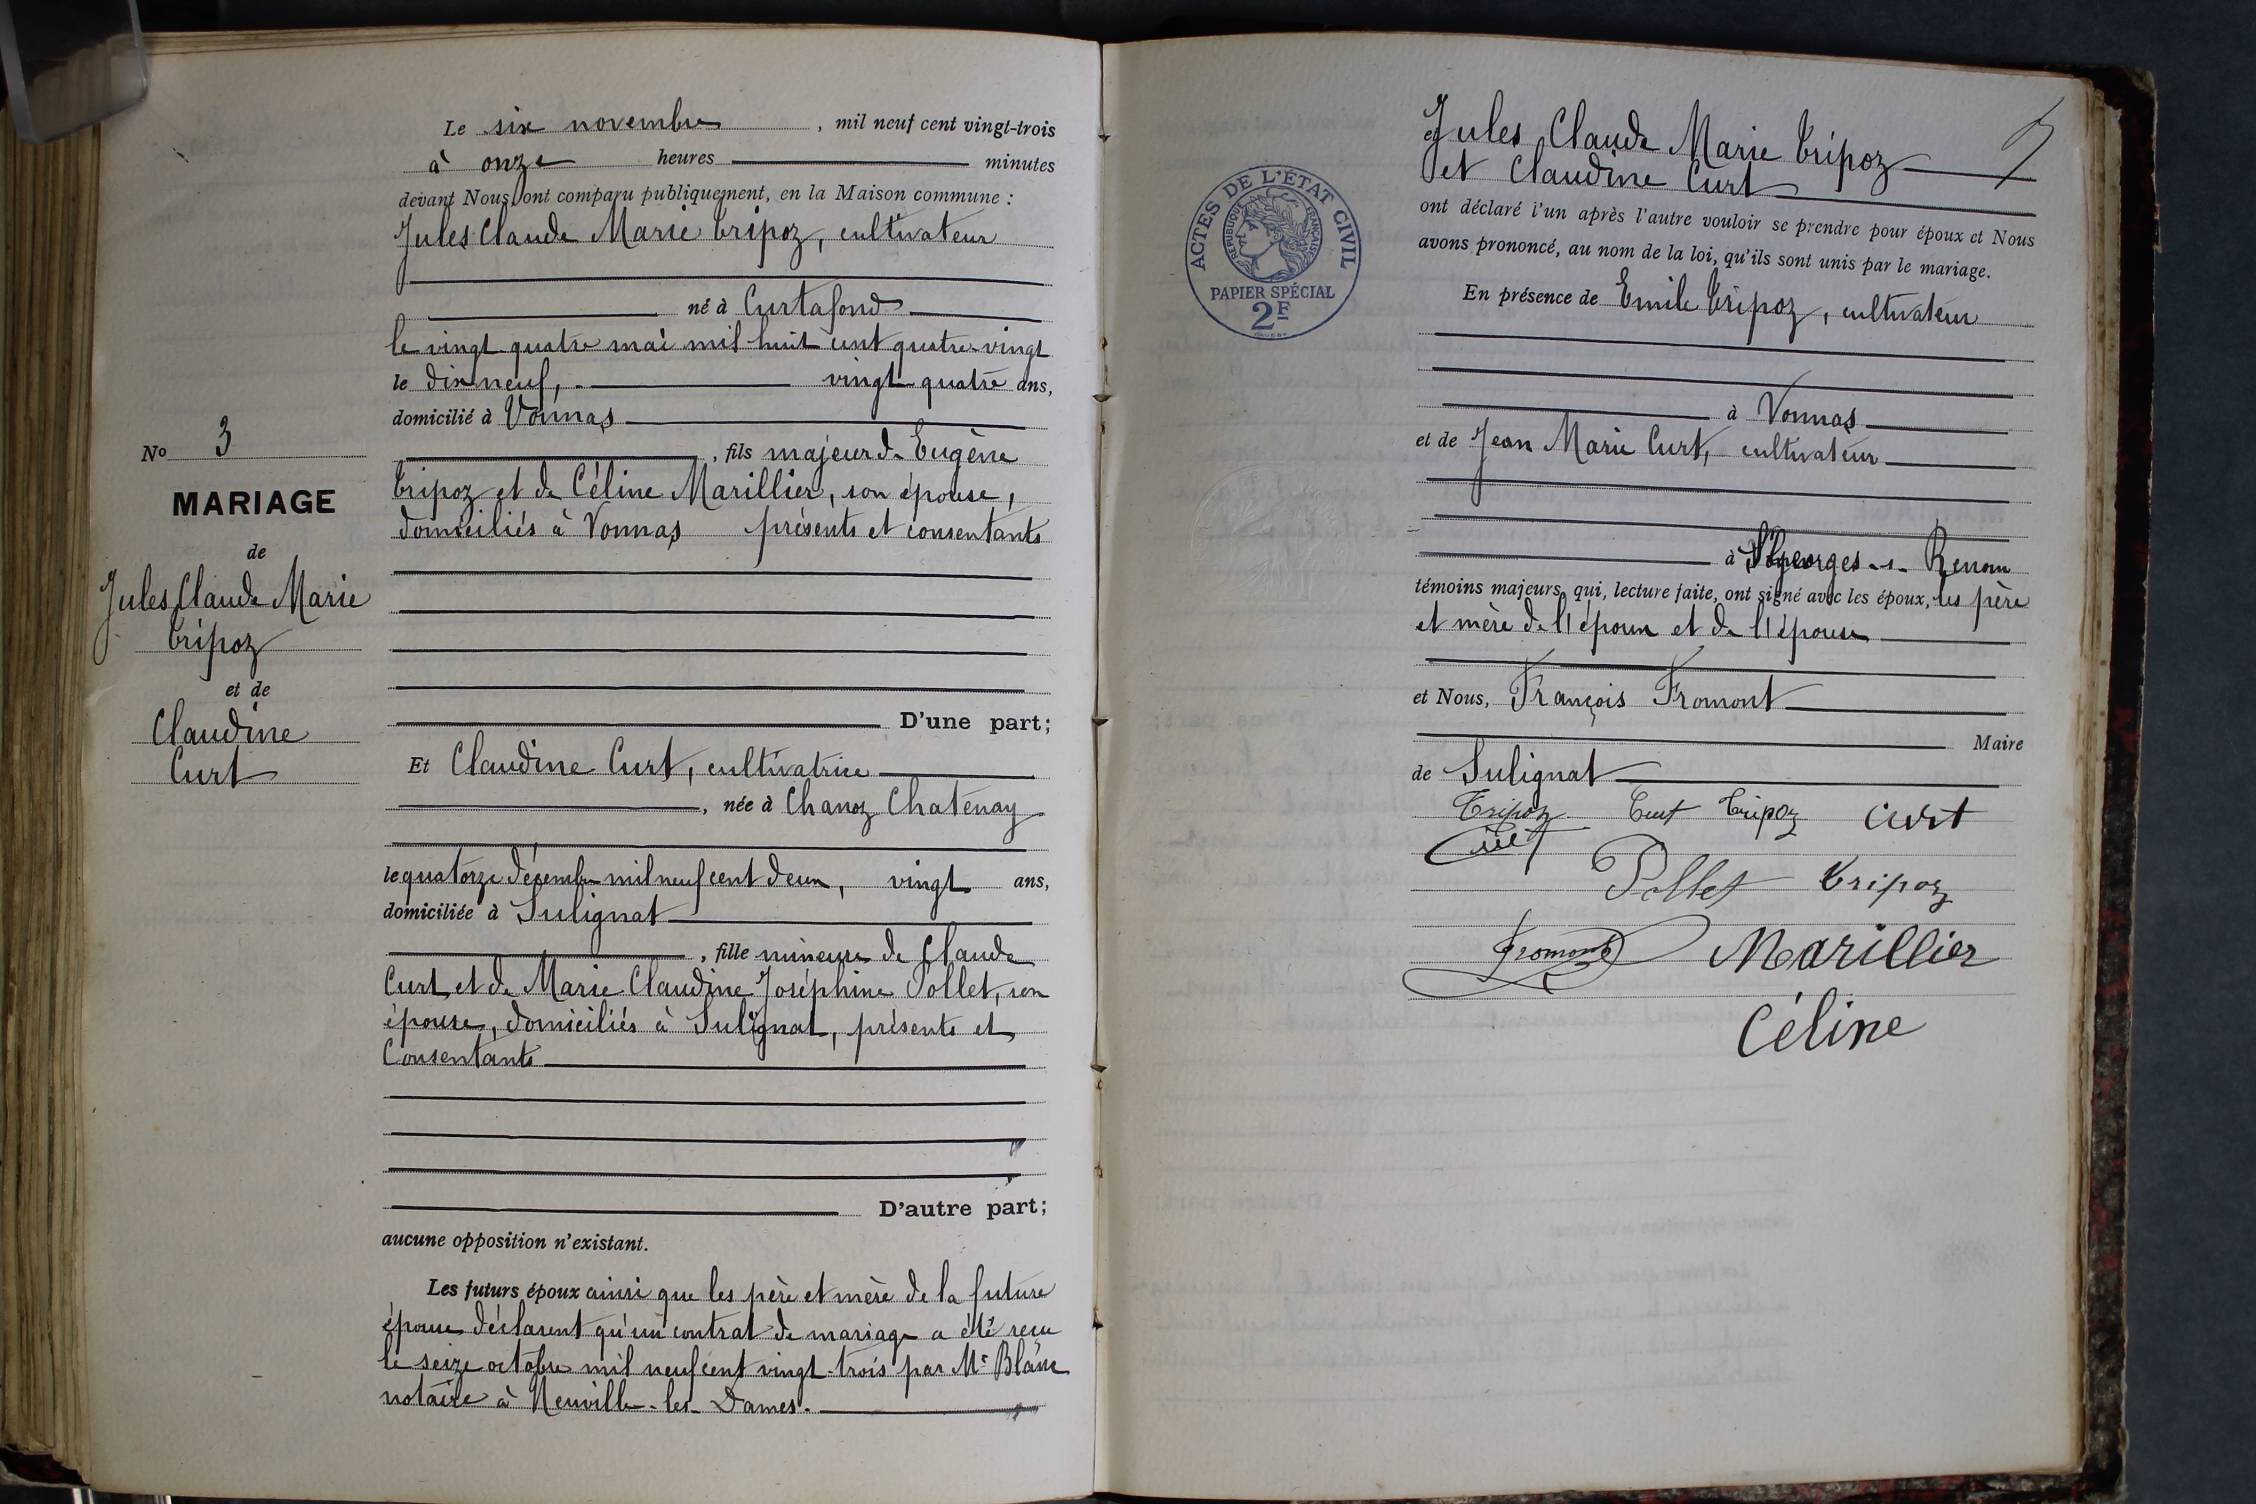 Le six novembre, mil neuf cent vingt-trois
à onze heures minutes
devant Nous, ont comparu publiquement, en la Maison commune :
Jules Claude Marie Tripoz, cultivateur
né à Curtafond
le vingt quatre mai mil huit cent quatre-vingt
le dix neuf, vingt-quatre ans,
domicilié à Vonnas
, fils majeur de Eugène
Tripoz et de Céline Marillier, son épouse,
domiciliés à Vonnas présents et consentants
D'une part;
No 3
MARIAGE
de
Jules Claude Marie
Tripoz
et de
Claudine
Curt
Et Claudine Curt, cultivatrice
, née à Chanoz Chatenay
le quatorze décembre mil neuf cent deux, vingt ans,
domiciliée à Sulignat
, fille mineure de Claude
Curt et de Marie Claudine Joséphine Pollet, son
épouse, domiciliés à Sulignat, présents et
Consentants
D'autre part;
aucune opposition n'existant.
Les futurs époux ainsi que les père et mère de la future
épouse déclarent qu'un contrat de mariage a été reçu
le seize octobre mil neuf cent vingt-trois par Mr Blanc
notaire à Neuville-les-Dames.
Jules Claude Marie Tripoz
et Claudine Curt
ont déclaré l'un après l'autre vouloir se prendre pour époux et Nous
avons prononcé, au nom de la loi, qu'ils sont unis par le mariage.
ACTES DE L'ÉTAT CIVIL
RÉPUBLIQUE FRANÇAISE
PAPIER SPÉCIAL
2F
En présence de Emile Tripoz, cultivateur
à Vonnas
et de Jean Marie Curt, cultivateur
à St Georges-s-Renom
témoins majeurs, qui, lecture faite, ont signé avec les époux, les père
et mère de l'époux et de l'épouse
et Nous, François Fromont
Maire
de Sulignat
Tripoz Curt Tripoz Curt
Curt
Pollet Tripoz
Fromont Marillier
Céline